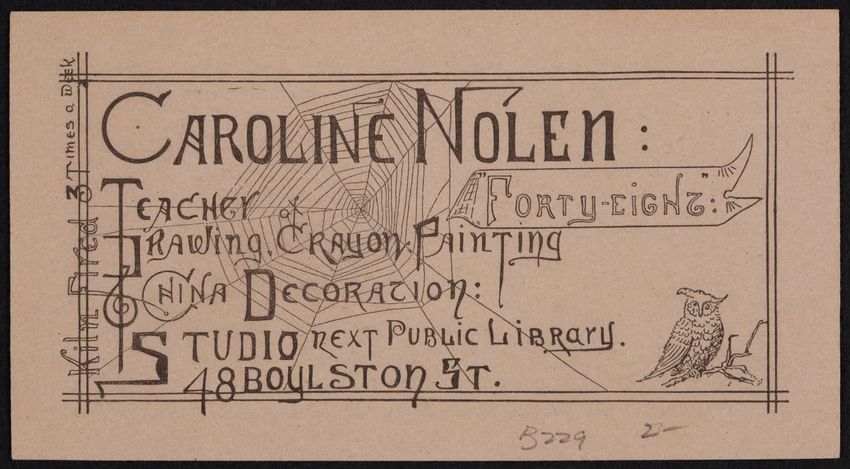 CAROLINE NOLEN:
"FORTY-EIGHT":
TEACHER of
DRAWING, CRAYON: PAINTING
& CHINA DECORATION:
STUDIO NEXT PUBLIC LIBRARY.
48 BOYLSTON ST.
Kiln Fired 3 Times a Week
B229 2-